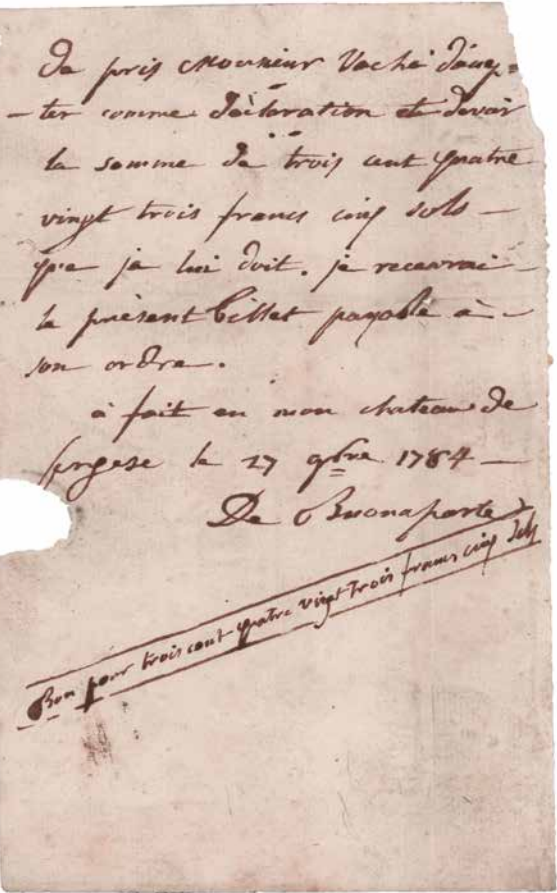 De pris Monsieur Vaché d'acep=
-ter comme dèclaration et devoir
la somme de trois cent quatre
vingt trois francs cinq sols -
que je lui doit. je recevrai -
le prèsent billet payable à -
son ordre.
à fait en mon chateau de
le 27 9bre 1784 -
De Buonaparte
Bon pour trois cent quatre vingt trois francs cinq sols